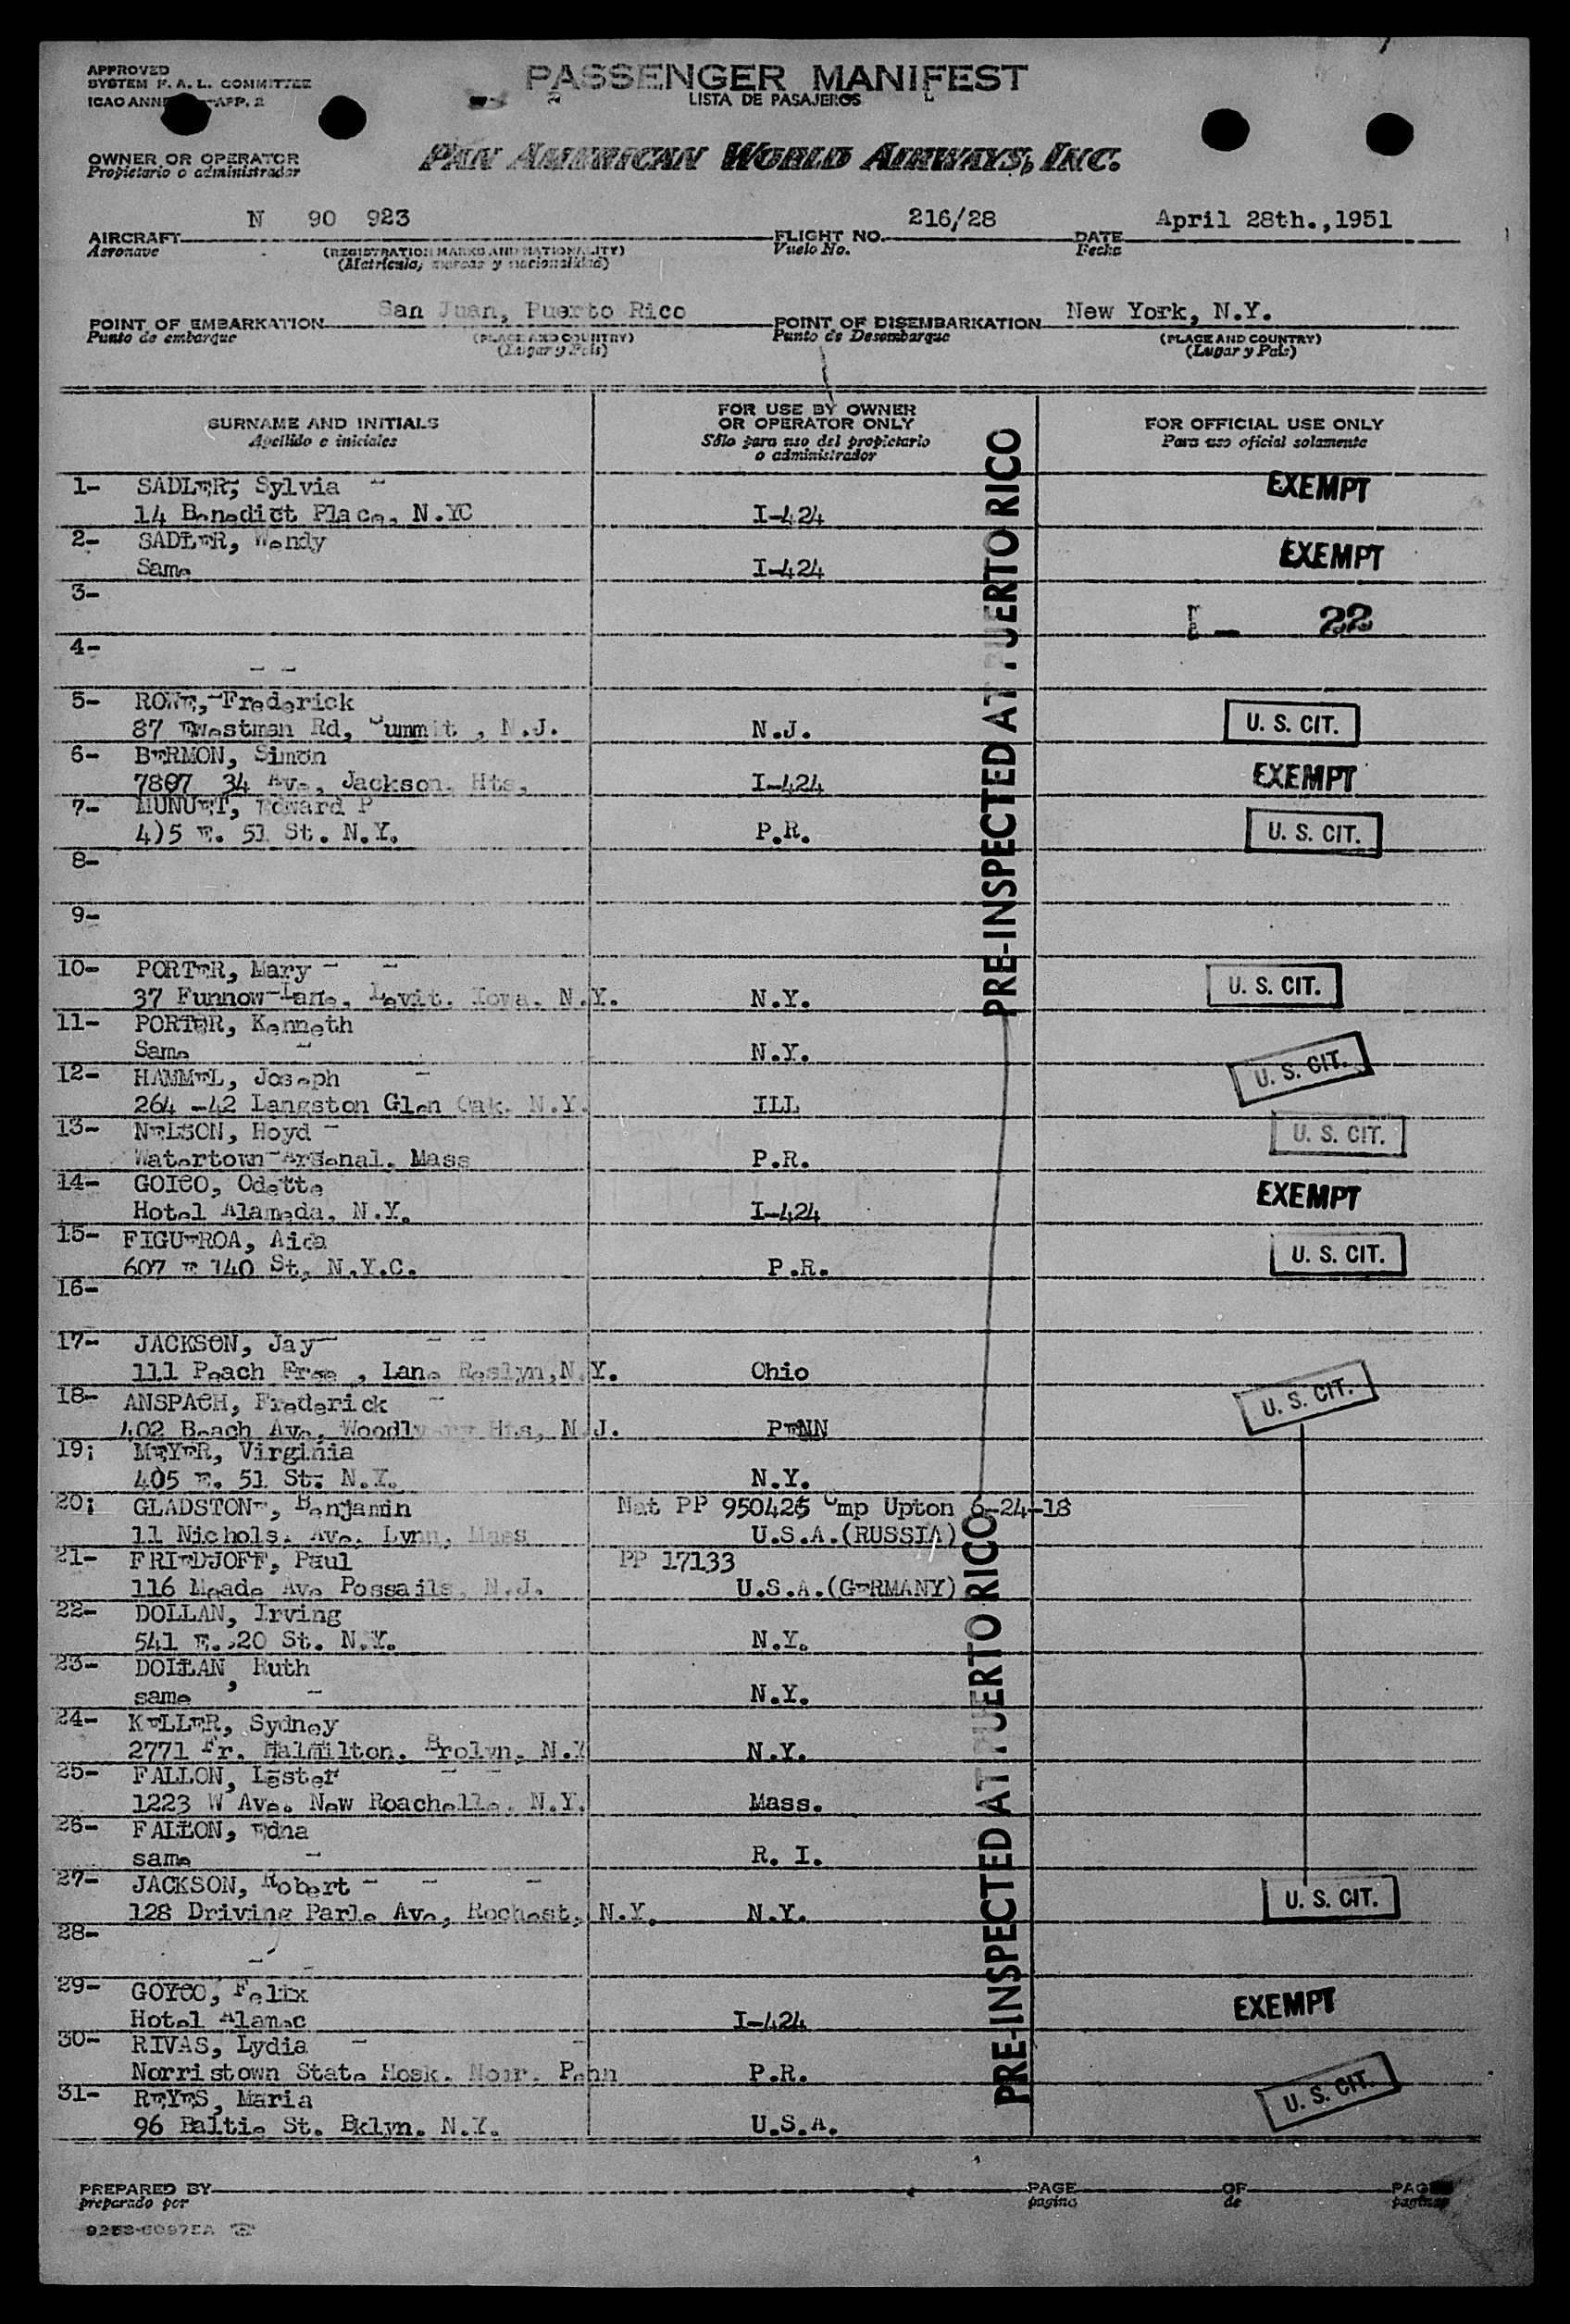 APPROVED
SYSTEM F.A.L. COMMITTEE
ICAO ANNE APP. 2
PASSENGER MANIFEST
LISTA DE PASAJEROS
OWNER OR OPERATOR
Propietario o administrador
PAN AMERICAN WORLD AIRWAYS, INC.
AIRCRAFT N 90 923 FLIGHT NO. 216/28 DATE April 28th.,1951
Aeronave (REGISTRATION MARKS AND NATIONALITY) Vuelo No. Fecha
(Matricula, marcas y nacionalidad)
POINT OF EMBARKATION San Juan, Puerto Rico POINT OF DISEMBARKATION New York, N.Y.
Punto de embarque (PLACE AND COUNTRY) Punto de Desembarque (PLACE AND COUNTRY)
(Lugar y País) (Lugar y País)
SURNAME AND INITIALS
Apellido e iniciales
FOR USE BY OWNER
OR OPERATOR ONLY
Sólo para uso del propietario
o administrador
FOR OFFICIAL USE ONLY
Para uso oficial solamente
PRE-INSPECTED AT PUERTO RICO
1- SADLER, Sylvia EXEMPT
14 Benedict Place, N.YC I-424
2- SADLER, Wendy EXEMPT
Same I-424
3-
22
4-
5- ROWE, Frederick
87 Ewestman Rd, Summit , N.J. N.J. U. S. CIT.
6- BERMON, Simon
7807 34 Ave, Jackson Hts, I-424 EXEMPT
7- MUNUET, Edward P
4)5 E. 51 St. N.Y. P.R. U. S. CIT.
8-
9-
10- PORTER, Mary
37 Funnow Lane, Levit. Iowa. N.Y. N.Y. U. S. CIT.
11- PORTER, Kenneth
Same N.Y.
12- HAMMEL, Joseph U. S. CIT.
264 -42 Langston Glen Oak. N.Y. ILL
13- NELSON, Hoyd U. S. CIT.
Watertown Arsenal. Mass P.R.
14- GOICO, Odette EXEMPT
Hotel Alameda, N.Y. I-424
15- FIGUEROA, Aida U. S. CIT.
607 E 140 St, N.Y.C. P.R.
16-
17- JACKSON, Jay
111 Peach Free , Lane Roslyn,N.Y. Ohio
18- ANSPACH, Frederick U. S. CIT.
402 Beach Ave, Hts, N.J. PENN
19; MEYER, Virginia
405 E. 51 St. N.Y. N.Y.
20; GLADSTONE, Benjamin Nat PP 950425 Cmp Upton 6-24-18
11 Nichols. Ave. Lynn, Mass U.S.A.(RUSSIA)
PRE-INSPECTED AT PUERTO RICO
21- FRIEDJOFF, Paul PP 17133
116 Meade Ave Possails, N.J. U.S.A.(GERMANY)
22- DOLLAN, Irving
541 E. 20 St. N.Y. N.Y.
23- DOLLAN , Ruth
same N.Y.
24- KELLER, Sydney
2771 Fr. Halmilton. Brolyn, N.Y N.Y.
25- FALLON, Lester
1223 W Ave. New Roachelle, N.Y. Mass.
26- FALLON, Edna
same R. I.
27- JACKSON, Robert
128 Driving Parle Ave, Rochest, N.Y. N.Y. U. S. CIT.
28-
29- GOYCO, Felix
Hotel Alamac I-424 EXEMPT
30- RIVAS, Lydia
Norristown State Hosk. Norr. Penn P.R.
31- REYES, Maria U. S. CIT.
96 Baltie St. Bklyn. N.Y. U.S.A.
PREPARED BY PAGE OF PAGES
preparado por pagina de paginas